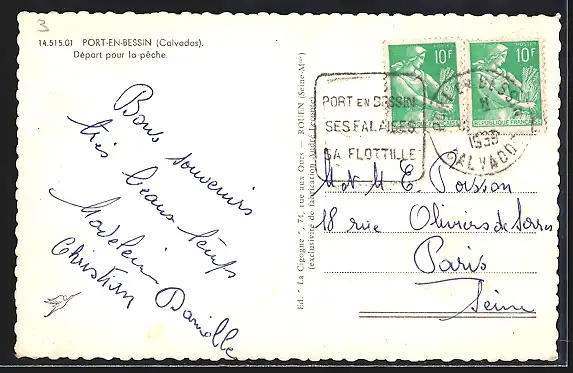 3
14.515.01 PORT-EN-BESSIN (Calvados).
Départ pour la pêche.
Bons souvenirs
très beau temps
Madeleine
Christian Danielle
Ed. "La Cigogne", 74, rue aux Ours — ROUEN (Seine-Mme)
(exclusivité de fabrication André Leconte)
PORT EN BESSIN
SES FALAISES
SA FLOTTILLE
POSTES
10F
REPUBLIQUE FRANÇAISE
POSTES
10F
REPUBLIQUE FRANÇAISE
PORT EN BESSIN
1959
CALVADOS
M et M E. Poisson
18 rue Oliviers de Serres
Paris
Seine